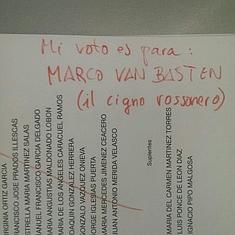 Mi voto es para:
MARCO VAN BASTEN
(il cigno rossonero)
VIRGINIA ORTIZ GARCIA
FRANCISCO JOSE PRADOS ILLESCAS
ESTRELLA MARIA MARTINEZ SALAS
MANUEL FRANCISCO GARCIA DELGADO
MARIA ANGUSTIAS MALDONADO LOBON
MARIA DE LOS ANGELES CARACUEL RAMOS
JOAQUIN GONZALEZ HERRERA
GONZALO VAZQUEZ ONIEVA
JORGE IGLESIAS PUERTA
MARIA MERCEDES JIMENEZ CEACERO
JUAN ANTONIO MERIDA VELASCO
Suplentes
MARIA DEL CARMEN MARTINEZ TORRES
LUIS PONCE DE LEON DIAZ
IGNACIO PIPO MALGOSA